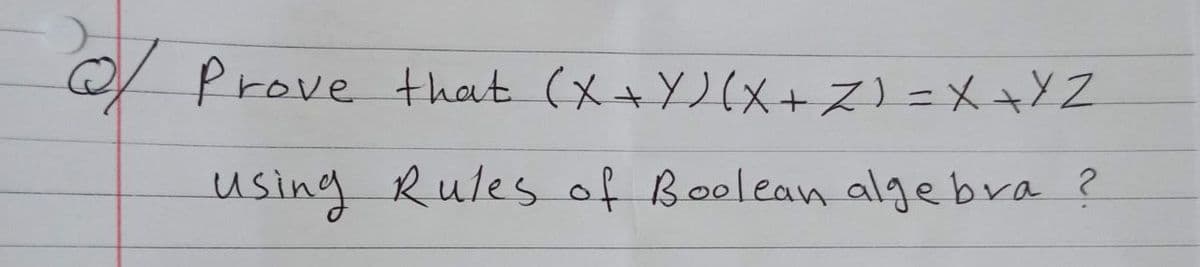 Q/ Prove that (X+Y)(X+Z)=X+YZ
using Rules of Boolean algebra ?